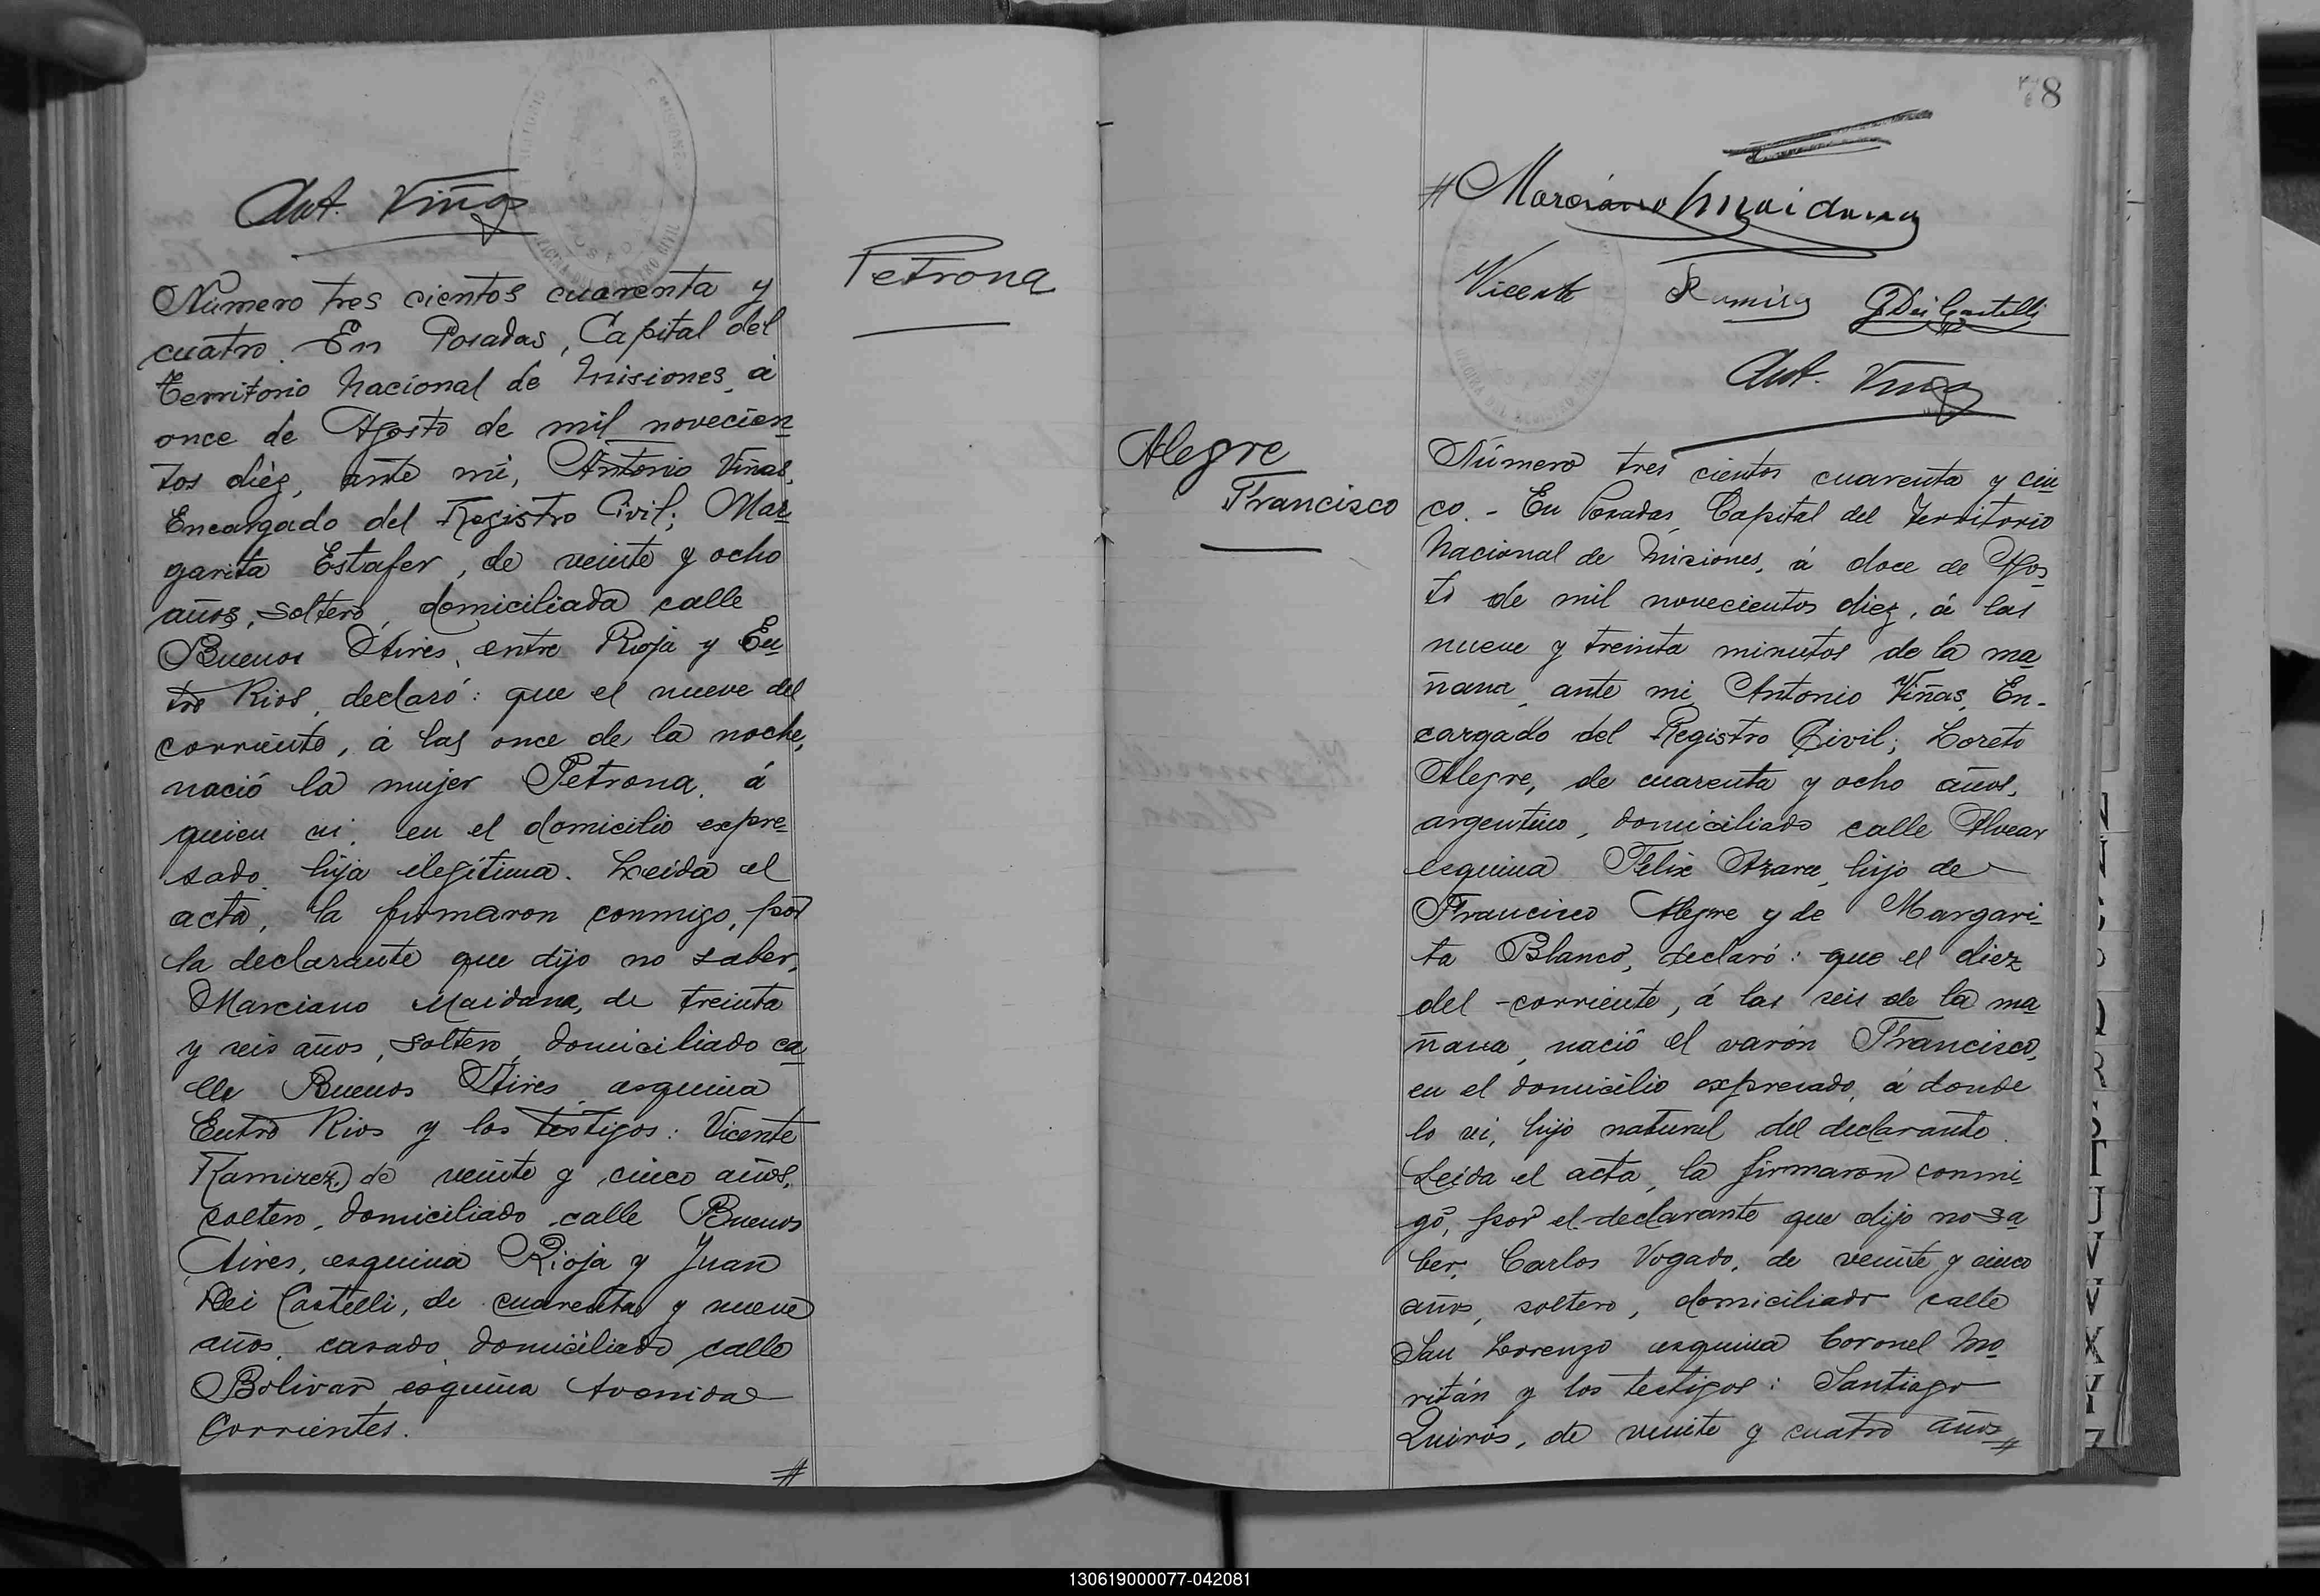 Ant. Viñas
Número tres cientos cuarenta y
cuatro. En Posadas, Capital del
Territorio Nacional de Misiones, á
once de Agosto de mil novecien
tos diéz, ante mí, Antonio Viñas,
Encargado del Registro Civil; Mar
garita Estafer, de veinte y ocho
años, soltero, domiciliada calle
Buenos Aires, entre Rioja y En
tre Rios, declaró: que el nueve del
corriente, á las once de la noche,
nació la mujer Petrona, á
quien vi, en el domicilio expre
sado, hija ilegítima. Leida el
acta, la firmaron conmigo, por
la declarante que dijo no saber,
Marciano Maidana, de treinta
y seis años, soltero, domiciliado ca
lle Buenos Aires esquina
Entre Rios y los testigos: Vicente
Ramirez, de veinte y cinco años,
soltero, domiciliado calle Buenos
Aires, esquina Rioja y Juan
Dei Castelli, de cuarenta y nueve
años, casado, domiciliado calle
Bolivar esquina Avenida
Corrientes.
#
Petrona
78
# Marciano Maidana
Vicente Ramirez J Dei Castelli
Ant. Viñas
Alegre
Francisco
Número tres cientos cuarenta y cin
co. - En Posadas, Capital del Territorio
Nacional de Misiones, á doce de Agos
to de mil novecientos diez, á las
nueve y treinta minutos de la ma
ñana, ante mi, Antonio Viñas, En-
cargado del Registro Civil; Loreto
Alegre, de cuarenta y ocho años,
argentino, domiciliado calle Alvear
esquina Felix Azara, hijo de
Francisco Alegre y de Margari-
ta Blanco, declaró: que el diez
del corriente, á las seis de la ma
ñana, nació el varón Francisco,
en el domicilio expresado, á donde
lo vi, hijo natural del declarante.
Leida el acta, la firmaron conmi
go, por el declarante que dijo no sa
ber, Carlos Vogado, de veinte y cinco
años, soltero, domiciliado calle
San Lorenzo esquina Coronel Mo
ritán y los testigos: Santiago
Quirós, de veinte y cuatro años #
R
S
T
U
V
X
Y
Z
130619000077-042081